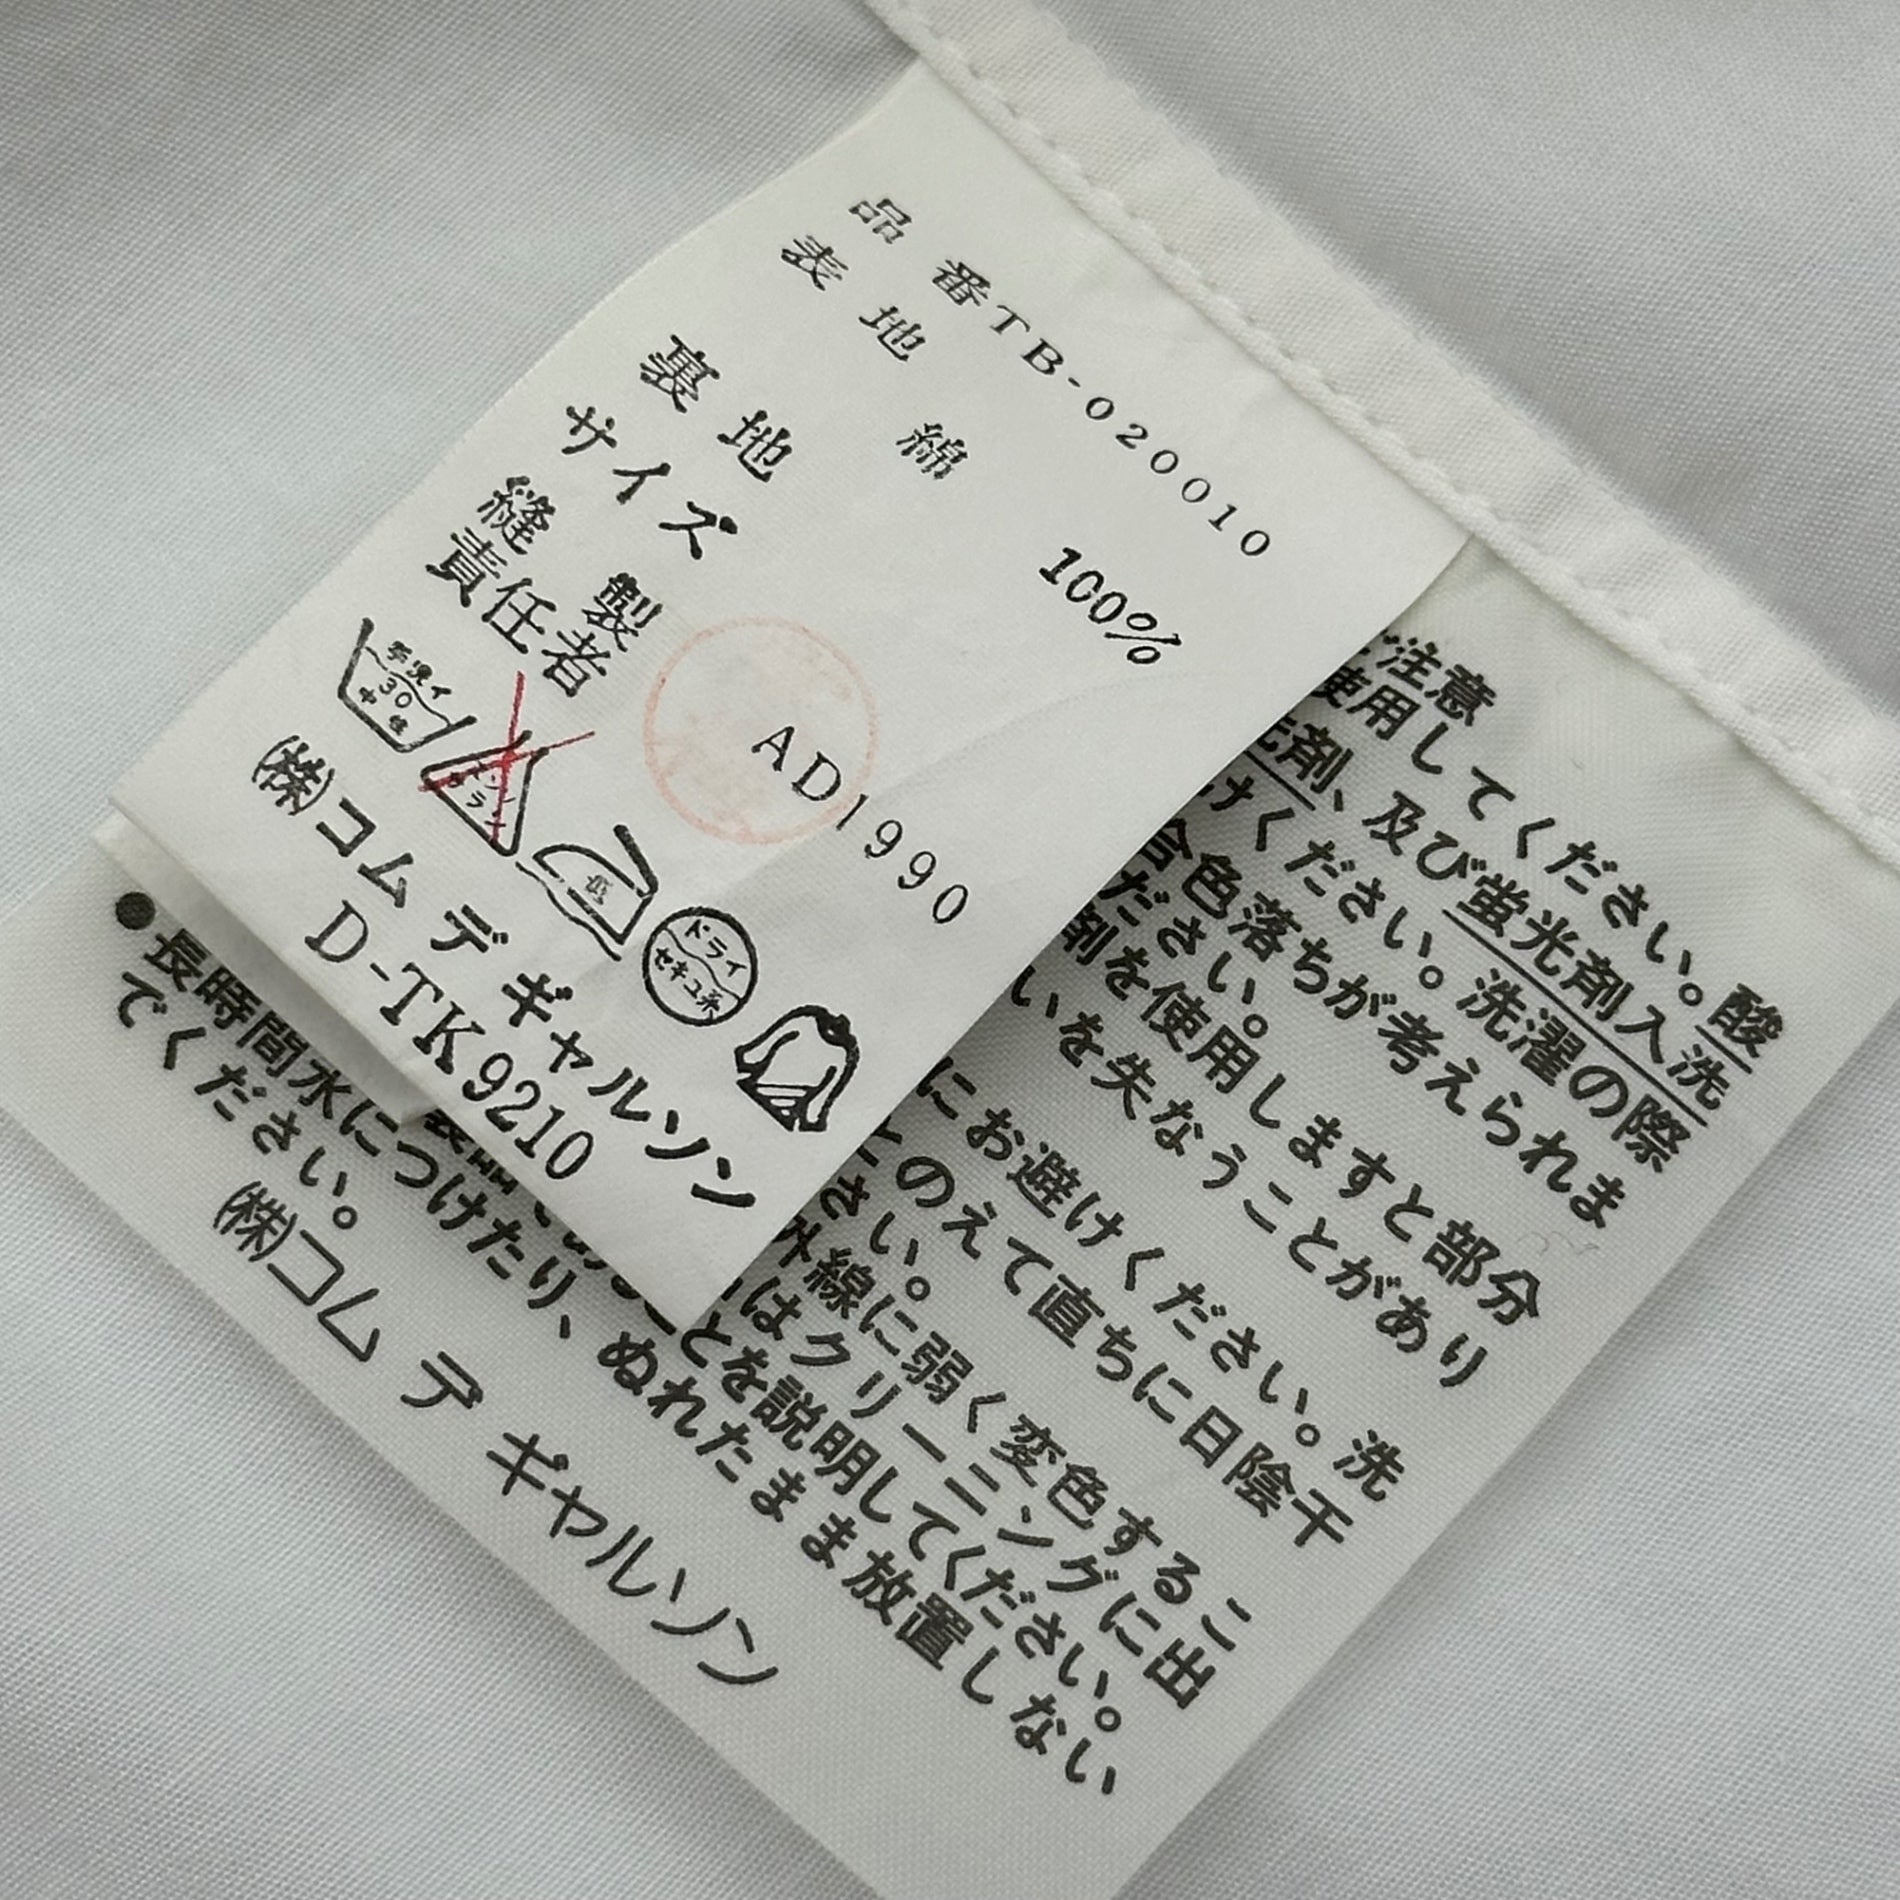 品 番TB-020010
表 地
綿 100%
裏 地
サイズ
縫 製
責任者
AD1990
手洗イ
30
中性
エンソ
サラシ
低
ドライ
セキユ系
(株)コム デ ギャルソン
D-TK9210
ご注意
使用してください。酸
洗剤、及び蛍光剤入洗
けください。洗濯の際
合色落ちが考えられま
ださい。
剤を使用しますと部分
いを失なうことがあり
にお避けください。洗
とのえて直ちに日陰干
さい。
外線に弱く変色するこ
はクリーニングに出
ことを説明してください。
●長時間水につけたり、ぬれたまま放置しない
でください。
(株)コム デ ギャルソン